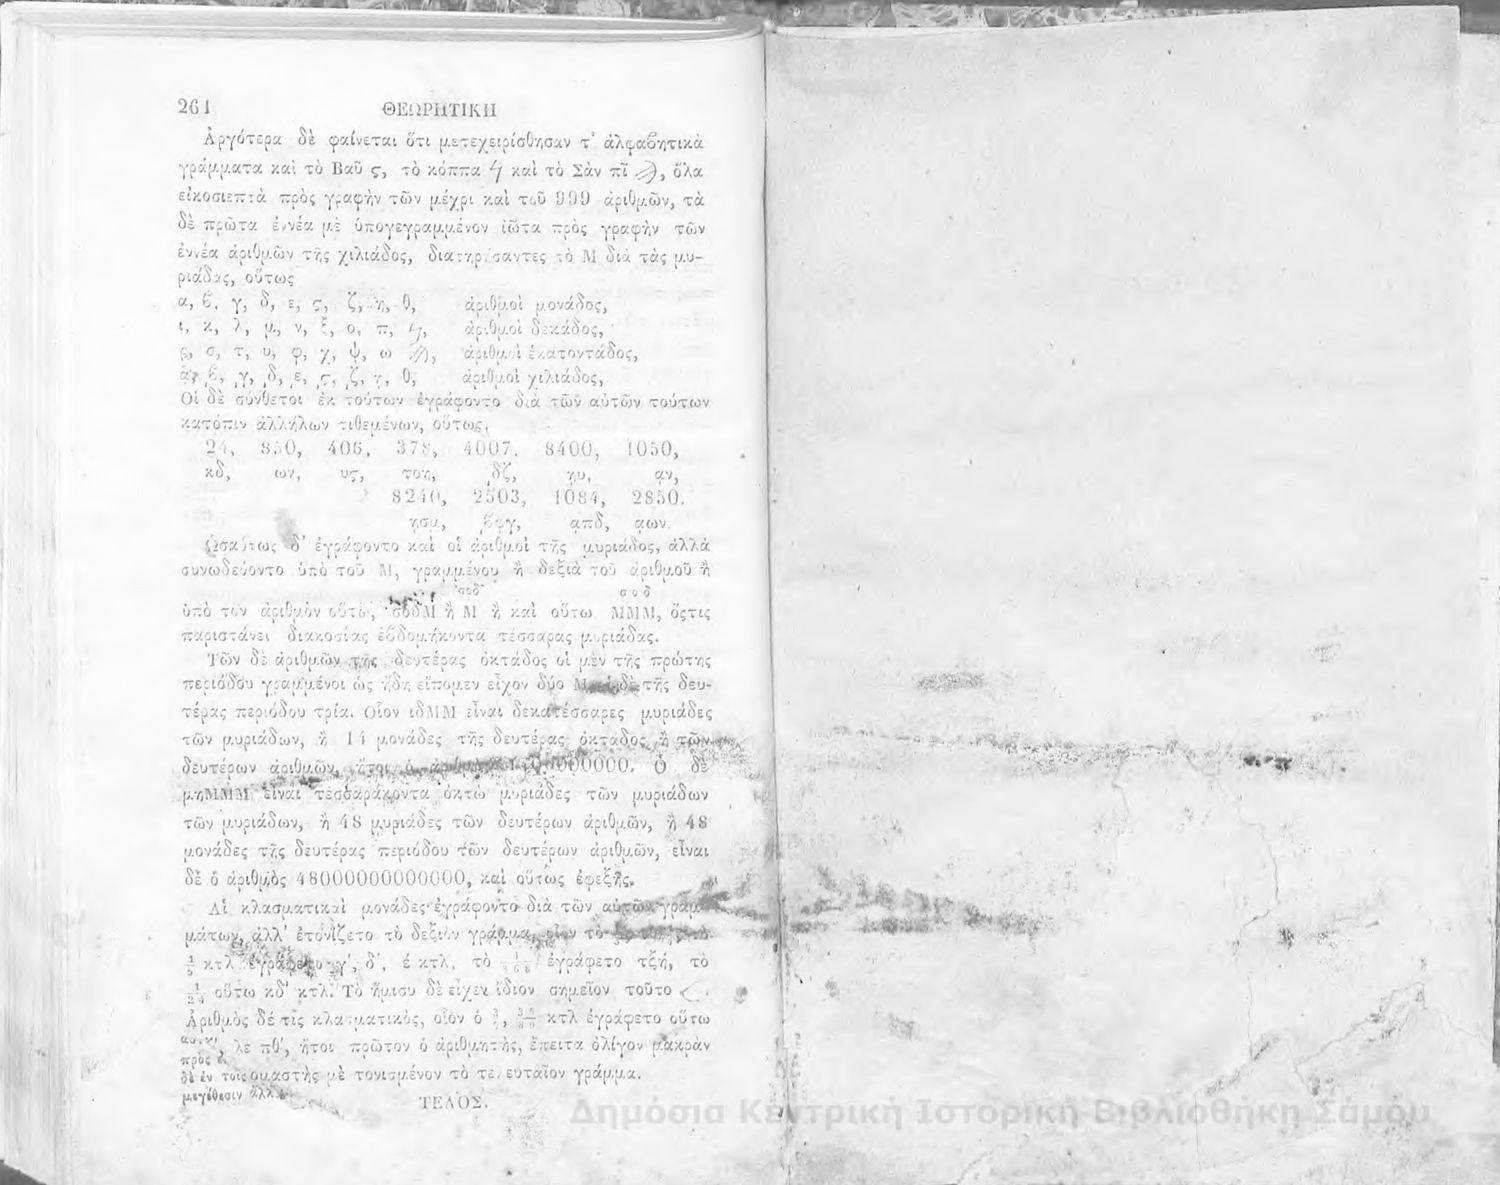 264 ΘΕΩΡΗΤΙΚΗ
Ἀργότερα δὲ φαίνεται ὅτι μετεχειρίσθησαν τ' ἀλφαβητικὰ
γράμματα καὶ τὸ Βαῦ ϛ, τὸ κόππα ϟ καὶ τὸ Σὰν πῖ ϡ, ὅλα
εἰκοσιεπτὰ πρὸς γραφὴν τῶν μέχρι καὶ τοῦ 999 ἀριθμῶν, τὰ
δὲ πρῶτα ἐννέα μὲ ὑπογεγραμμένον ἰῶτα πρὸς γραφὴν τῶν
ἐννέα ἀριθμῶν τῆς χιλιάδος, διατηρήσαντες τὸ Μ διὰ τὰς μυ-
ριάδας, οὕτως
α, β, γ, δ, ε, ϛ, ζ, η, θ, ἀριθμοὶ μονάδος,
ι, κ, λ, μ, ν, ξ, ο, π, ϟ, ἀριθμοὶ δεκάδος,
ρ, σ, τ, υ, φ, χ, ψ, ω ϡ, ἀριθμοὶ ἑκατοντάδος,
͵α, ͵β, ͵γ, ͵δ, ͵ε, ͵ϛ, ͵ζ, ͵η, ͵θ, ἀριθμοὶ χιλιάδος,
Οἱ δὲ σύνθετοι ἐκ τούτων ἐγράφοντο διὰ τῶν αὐτῶν τούτων
κατόπιν ἀλλήλων τιθεμένων, οὕτως,
24, 850, 406, 378, 4007, 8400, 1050,
κδ, ων, υϛ, τοη, ͵δζ, ͵ηυ, ͵αν,
8240, 2503, 1084, 2850.
͵ησμ, ͵βφγ, ͵απδ, ͵αων.
Ὡσαύτως δ' ἐγράφοντο καὶ οἱ ἀριθμοὶ τῆς μυριάδος, ἀλλὰ
συνωδεύοντο ὑπὸ τοῦ Μ, γραμμένου ἢ δεξιὰ τοῦ ἀριθμοῦ ἢ
σοδ σ ο δ
ὑπὸ τὸν ἀριθμὸν οὕτω, σοδΜ ἢ Μ ἢ καὶ οὕτω ΜΜΜ, ὅςτις
παριστάνει διακοσίας ἑβδομήκοντα τέσσαρας μυριάδας.
Τῶν δὲ ἀριθμῶν τῆς δευτέρας ὀκτάδος οἱ μὲν τῆς πρώτης
περιόδου γραμμένοι ὡς ἤδη εἴπομεν εἶχον δύο Μ τῆς δευ-
τέρας περιόδου τρία. Οἷον ιδΜΜ εἶναι δεκατέσσαρες μυριάδες
τῶν μυριάδων, ἢ 14 μονάδες τῆς δευτέρας ὀκτάδος ἢ τῶν
δευτέρων ἀριθμῶν, ἤτοι ὁ Ὁ δὲ
μηΜΜΜ εἶναι τεσσαράκοντα ὀκτὼ μυριάδες τῶν μυριάδων
τῶν μυριάδων, ἢ 48 μυριάδες τῶν δευτέρων ἀριθμῶν, ἢ 48
μονάδες τῆς δευτέρας περιόδου τῶν δευτέρων ἀριθμῶν, εἶναι
δὲ ὁ ἀριθμὸς 48000000000000, καὶ οὕτως ἐφεξῆς.
Αἱ κλασματικαὶ μονάδες ἐγράφοντο διὰ τῶν αὐτῶν γραμ-
μάτων, ἀλλ' ἐτονίζετο τὸ δεξιὸν γράμμα, οἷον τὸ
κτλ ἐγράφετο γ', δ', έ κτλ. τὸ ἐγράφετο τξή, τὸ
1/24 οὕτω κδ' κτλ. Τὸ ἥμισυ δὲ εἶχεν ἴδιον σημεῖον τοῦτο
Ἀριθμὸς δέ τις κλασματικὸς, οἷον ὁ κτλ ἐγράφετο οὕτω
λε πθ', ἤτοι πρῶτον ὁ ἀριθμητὴς, ἔπειτα ὀλίγον μακρὰν
ομαστὴς μὲ τονισμένον τὸ τελευταῖον γράμμα.
ΤΕΛΟΣ.
Δημόσια Κεντρική Ιστορική Βιβλιοθήκη Σάμου